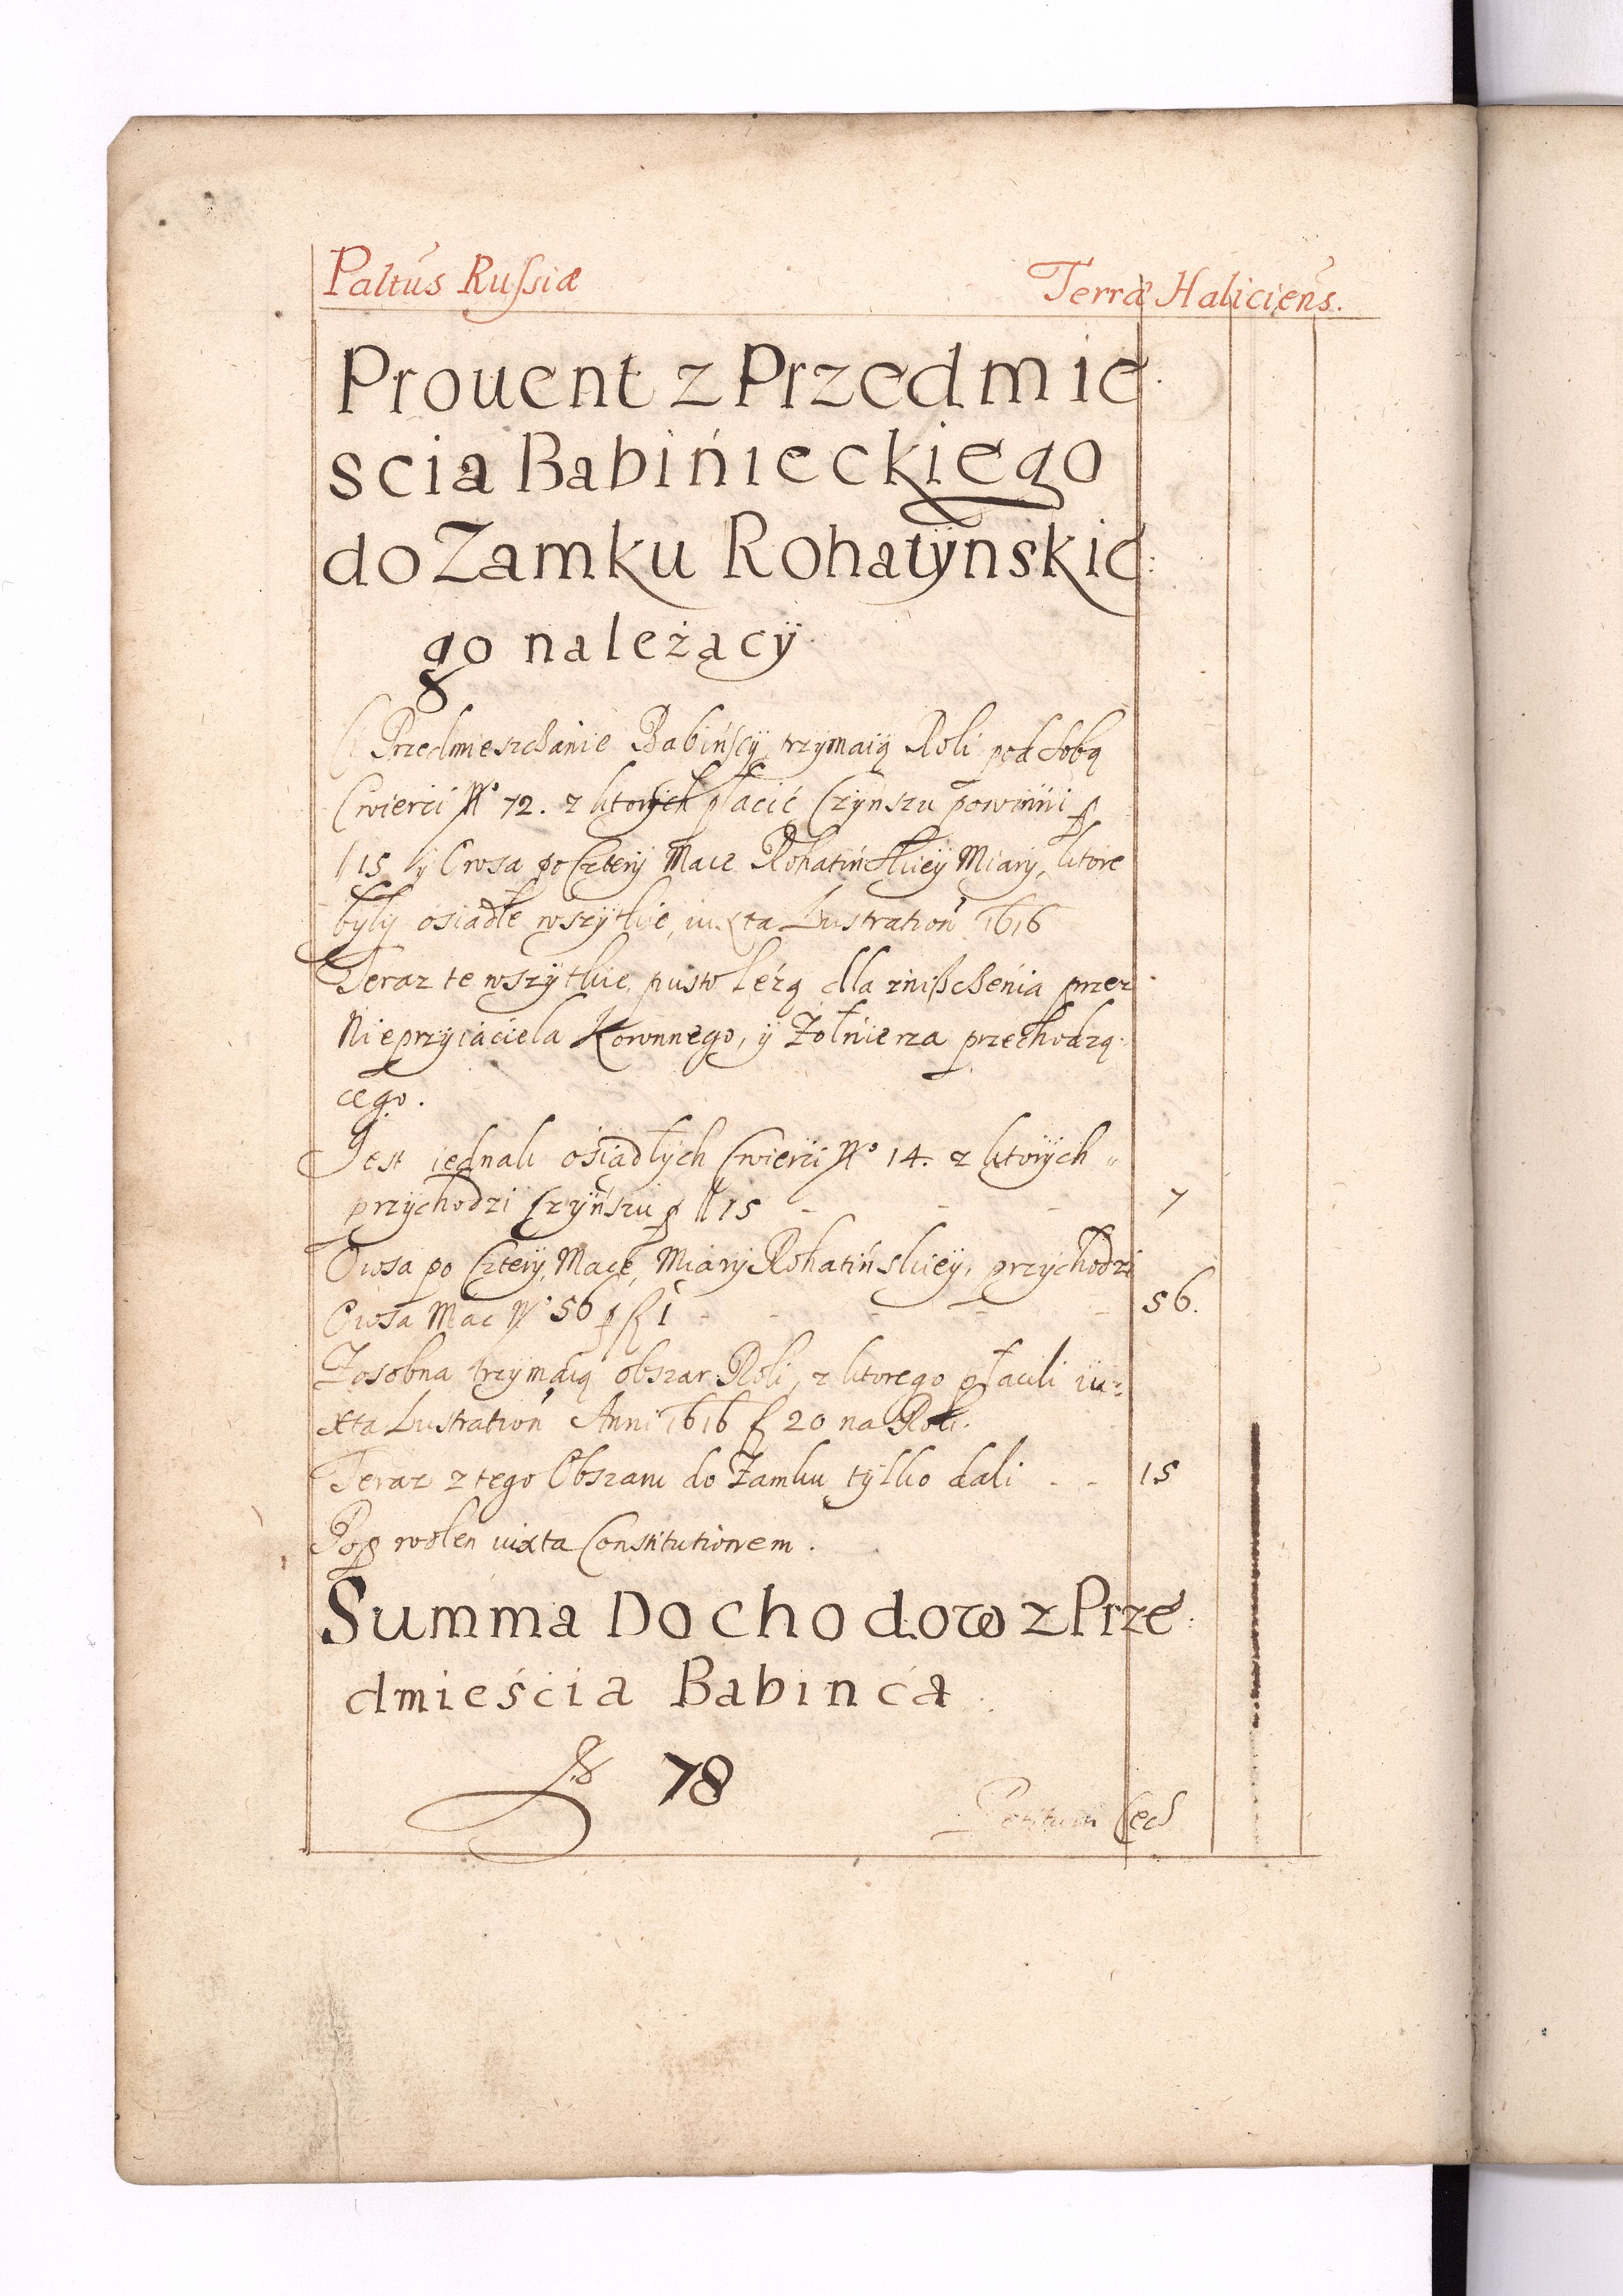 Paltus Russiæ
Terræ Haliciens.
Prouent z Przedmie
scia Babińieckiego
do Zamku Rohatÿnskie:
go należącÿ
Ci Przedmieszczanie Babińscÿ trzymaią Roli pod sobą
Cwierci No 72. z ktorÿch płacić Czÿnszu powinni p
ll 15 ÿ Owsa po Czterÿ Mace Rohatińskieÿ Miarÿ, ktore
bÿlÿ osiadłe wszÿtkie, iuxta Lustration 1616
Teraz te wszÿtkie pusto leżą dla znisczenia przez
Nieprzyiaciela Koronnego, ÿ Żołnierza przechodzą:
cego.
Jest iednak osiadłÿch Cwierci No 14. z ktorÿch
przÿchodzi Czÿnszu p ll 15 - - - 7
Owsa po Czterÿ Mace, Miarÿ Rohatińskieÿ, przÿchodzi
Owsa Mac No 56 p fl 1 - - - - 56.
Zosobna trzymaią obszar Roli, z ktorego płacili iu:
xta Lustration Anni 1616 f 20 na Rok.
Teraz z tego Obszaru do Zamku tÿlko dali - - 15
Pop wolen iuxta Constitutionem.
Summa Dochodow z Prze:
dmieścia Babinca
fl 78